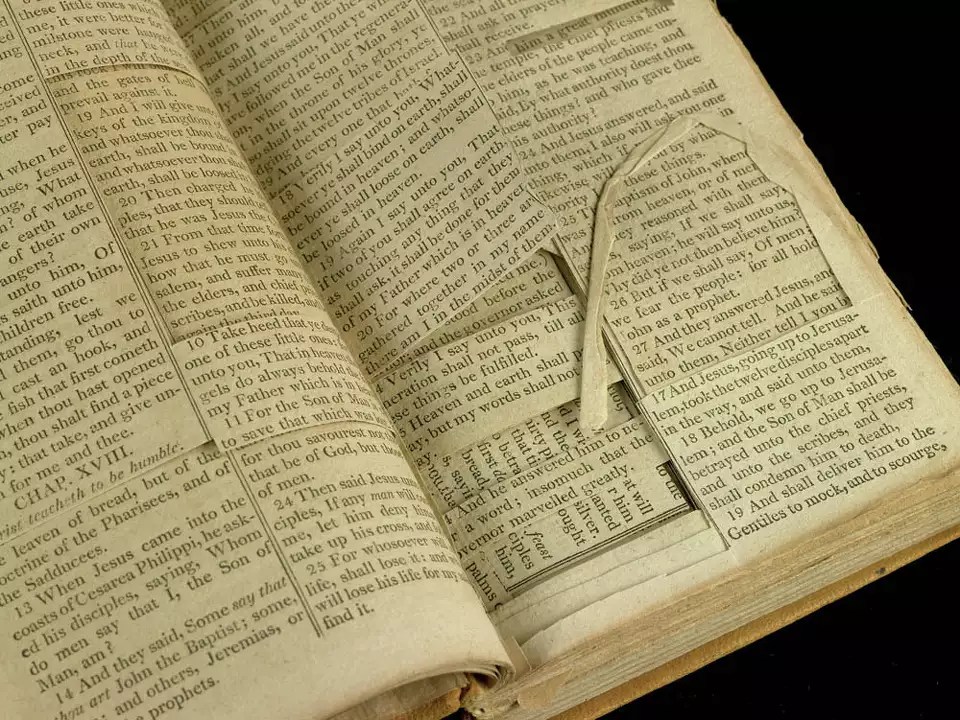 come
eceived
er, and
ter pay
when he
use, Jesus
ng, What
? of whom
e earth take
of their own
angers?
unto him, Of
saith unto him,
children free.
standing, lest we
them, go thou to
cast an hook, and
fish that first cometh
thou hast opened
thou shalt find a piece
: that take, and give un-
for me and thee.
CHAP. XVIII.
rist teacheth to be humble.
leaven of bread, but of the
octrine of the Pharisees, and of
the Sadducees.
13 When Jesus came into the
coasts of Cesarea Philippi, he ask-
ed his disciples, saying, Whom
do men say that I, the Son of
Man, am?
14 And they said, Some say that
thou art John the Baptist; some,
and others, Jeremias, or
the prophets.
these little ones
me, it were better for
milstone were hanged
neck, and that he
in the depth of the
and the gates of hell
prevail against it.
19 And I will give
keys of the kingdom
and whatsoever thou
earth, shall be bound
and whatsoever thou
earth, shall be loosed
20 Then charged he
ples, that they should
he was Jesus the
21 From that time
Jesus to shew unto
how that he must go
salem, and suffer many
the elders, and chief
scribes, and be killed, and
10 Take heed that ye
one of these little ones
unto you, That in heaven
gels do always behold
my Father which is in
11 For the Son of Man
to save that which was
for thou savourest not
that be of God, but
of men.
24 Then said Jesus
ciples, If any man will
me, let him deny
take up his cross, and
25 For whosoever will
life, shall lose it: and
will lose his life for my
find it.
shall we have
And Jesus said unto
you, That ye
followed me in the regenera
when the Son of Man shall
the throne of his glory, ye
shall sit upon twelve thrones,
ging the twelve tribes of Israel.
every one that
18 Verily I say unto you, What-
soever ye shall bind on earth, shall
be bound in heaven; and whatso-
shall loose on earth, shall
be loosed in heaven.
19 Again I say unto you, That
if two of you shall agree on earth,
as touching any thing that they
shall ask, it shall be done for them
Father which is in heaven.
20 For where two or three are
gathered together in my name,
am I in the midst of them.
before the
and the governor asked
Verily I say unto you, This
eration shall not pass, till all
these things be fulfilled.
Heaven and earth shall
ay, but my words shall not
And he answered him to
a word; insomuch that the
vernor marvelled greatly.
at will
r him
silver.
ought
feast
ciples
him,
palms
22 And all
shall ask in prayer
him, a great
priest's
e temple,
elders of the people came un-
him, as he was teaching, and
id, By what authority doest thou
these things? and who gave thee
his authority?
24 And Jesus answered, and said
unto them, I also will ask you one
thing, which if
you by what
these things.
25 The baptism of John, when
from heaven, or of men?
they reasoned with them-
saying, If we shall say,
From heaven; he will say unto us,
Why did ye not then believe him?
26 But if we shall say, Of men;
we fear the people: for all hold
John as a prophet.
27 And they answered Jesus, and
said, We cannot tell. And he said
unto them, Neither tell I you
17 And Jesus, going up to Jerusa-
lem, took the twelve disciples apart
in the way, and said unto them,
18 Behold, we go up to Jerusa-
lem; and the Son of Man shall be
betrayed unto the chief priests,
and unto the scribes, and they
shall condemn him to death,
19 And shall deliver him to the
Gentiles to mock, and to scourge,